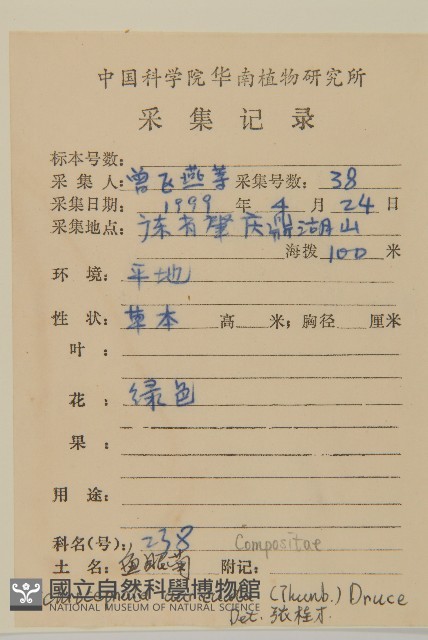 中国科学院华南植物研究所
采集记录
标本号数:
采集人:曾飞燕等 采集号数: 38
采集日期: 1999 年 4 月 24 日
采集地点: 广东省肇庆鼎湖山
海拨 100 米
环境: 平地
性状: 草本 高 米; 胸径 厘米
叶:
花: 绿色
果:
用途:
科名(号): 238 Compositae
土名: 鱼眼菊 附记:
國立自然科學博物館
NATIONAL MUSEUM OF NATURAL SCIENCE
(Thunb.) Druce
Det. 张桂才